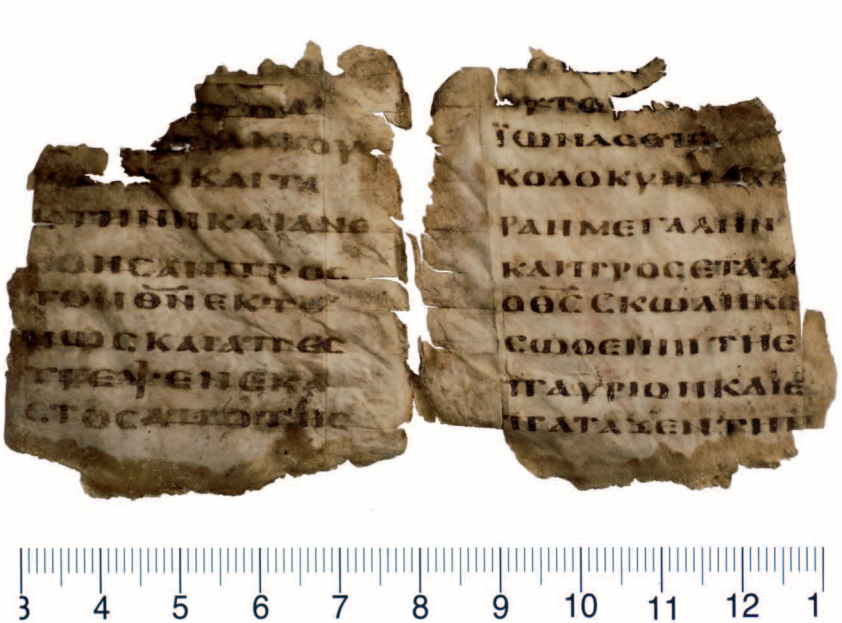 ϹΑΚΚΟΥ
ΚΑΙ ΤΑ
ΚΤΗΝΗ ΚΑΙ ΑΝΕ
ΒΟΗϹΑΝ ΠΡΟϹ
ΤΟΝ Θ̅Ν̅ ΕΚΤΕ
ΝΩϹ ΚΑΙ ΑΠΕϹ
ΤΡΕΨΕΝ ΕΚΑ
ϹΤΟϹ ΑΠΟ ΤΗϹ
ΪΩΝΑϹ ΕΠΙ
ΚΟΛΟΚΥΝΤΗ ΧΑ
ΡΑΝ ΜΕΓΑΛΗΝ
ΚΑΙ ΠΡΟϹΕΤΑΞΕ
Ο Θ̅Ϲ̅ ϹΚΩΛΗΚΙ
ΕΩΘΕΙΝΗ ΤΗ Ε
ΠΑΥΡΙΟΝ ΚΑΙ Ε
ΠΑΤΑΞΕΝ ΤΗΝ
3 4 5 6 7 8 9 10 11 12 1